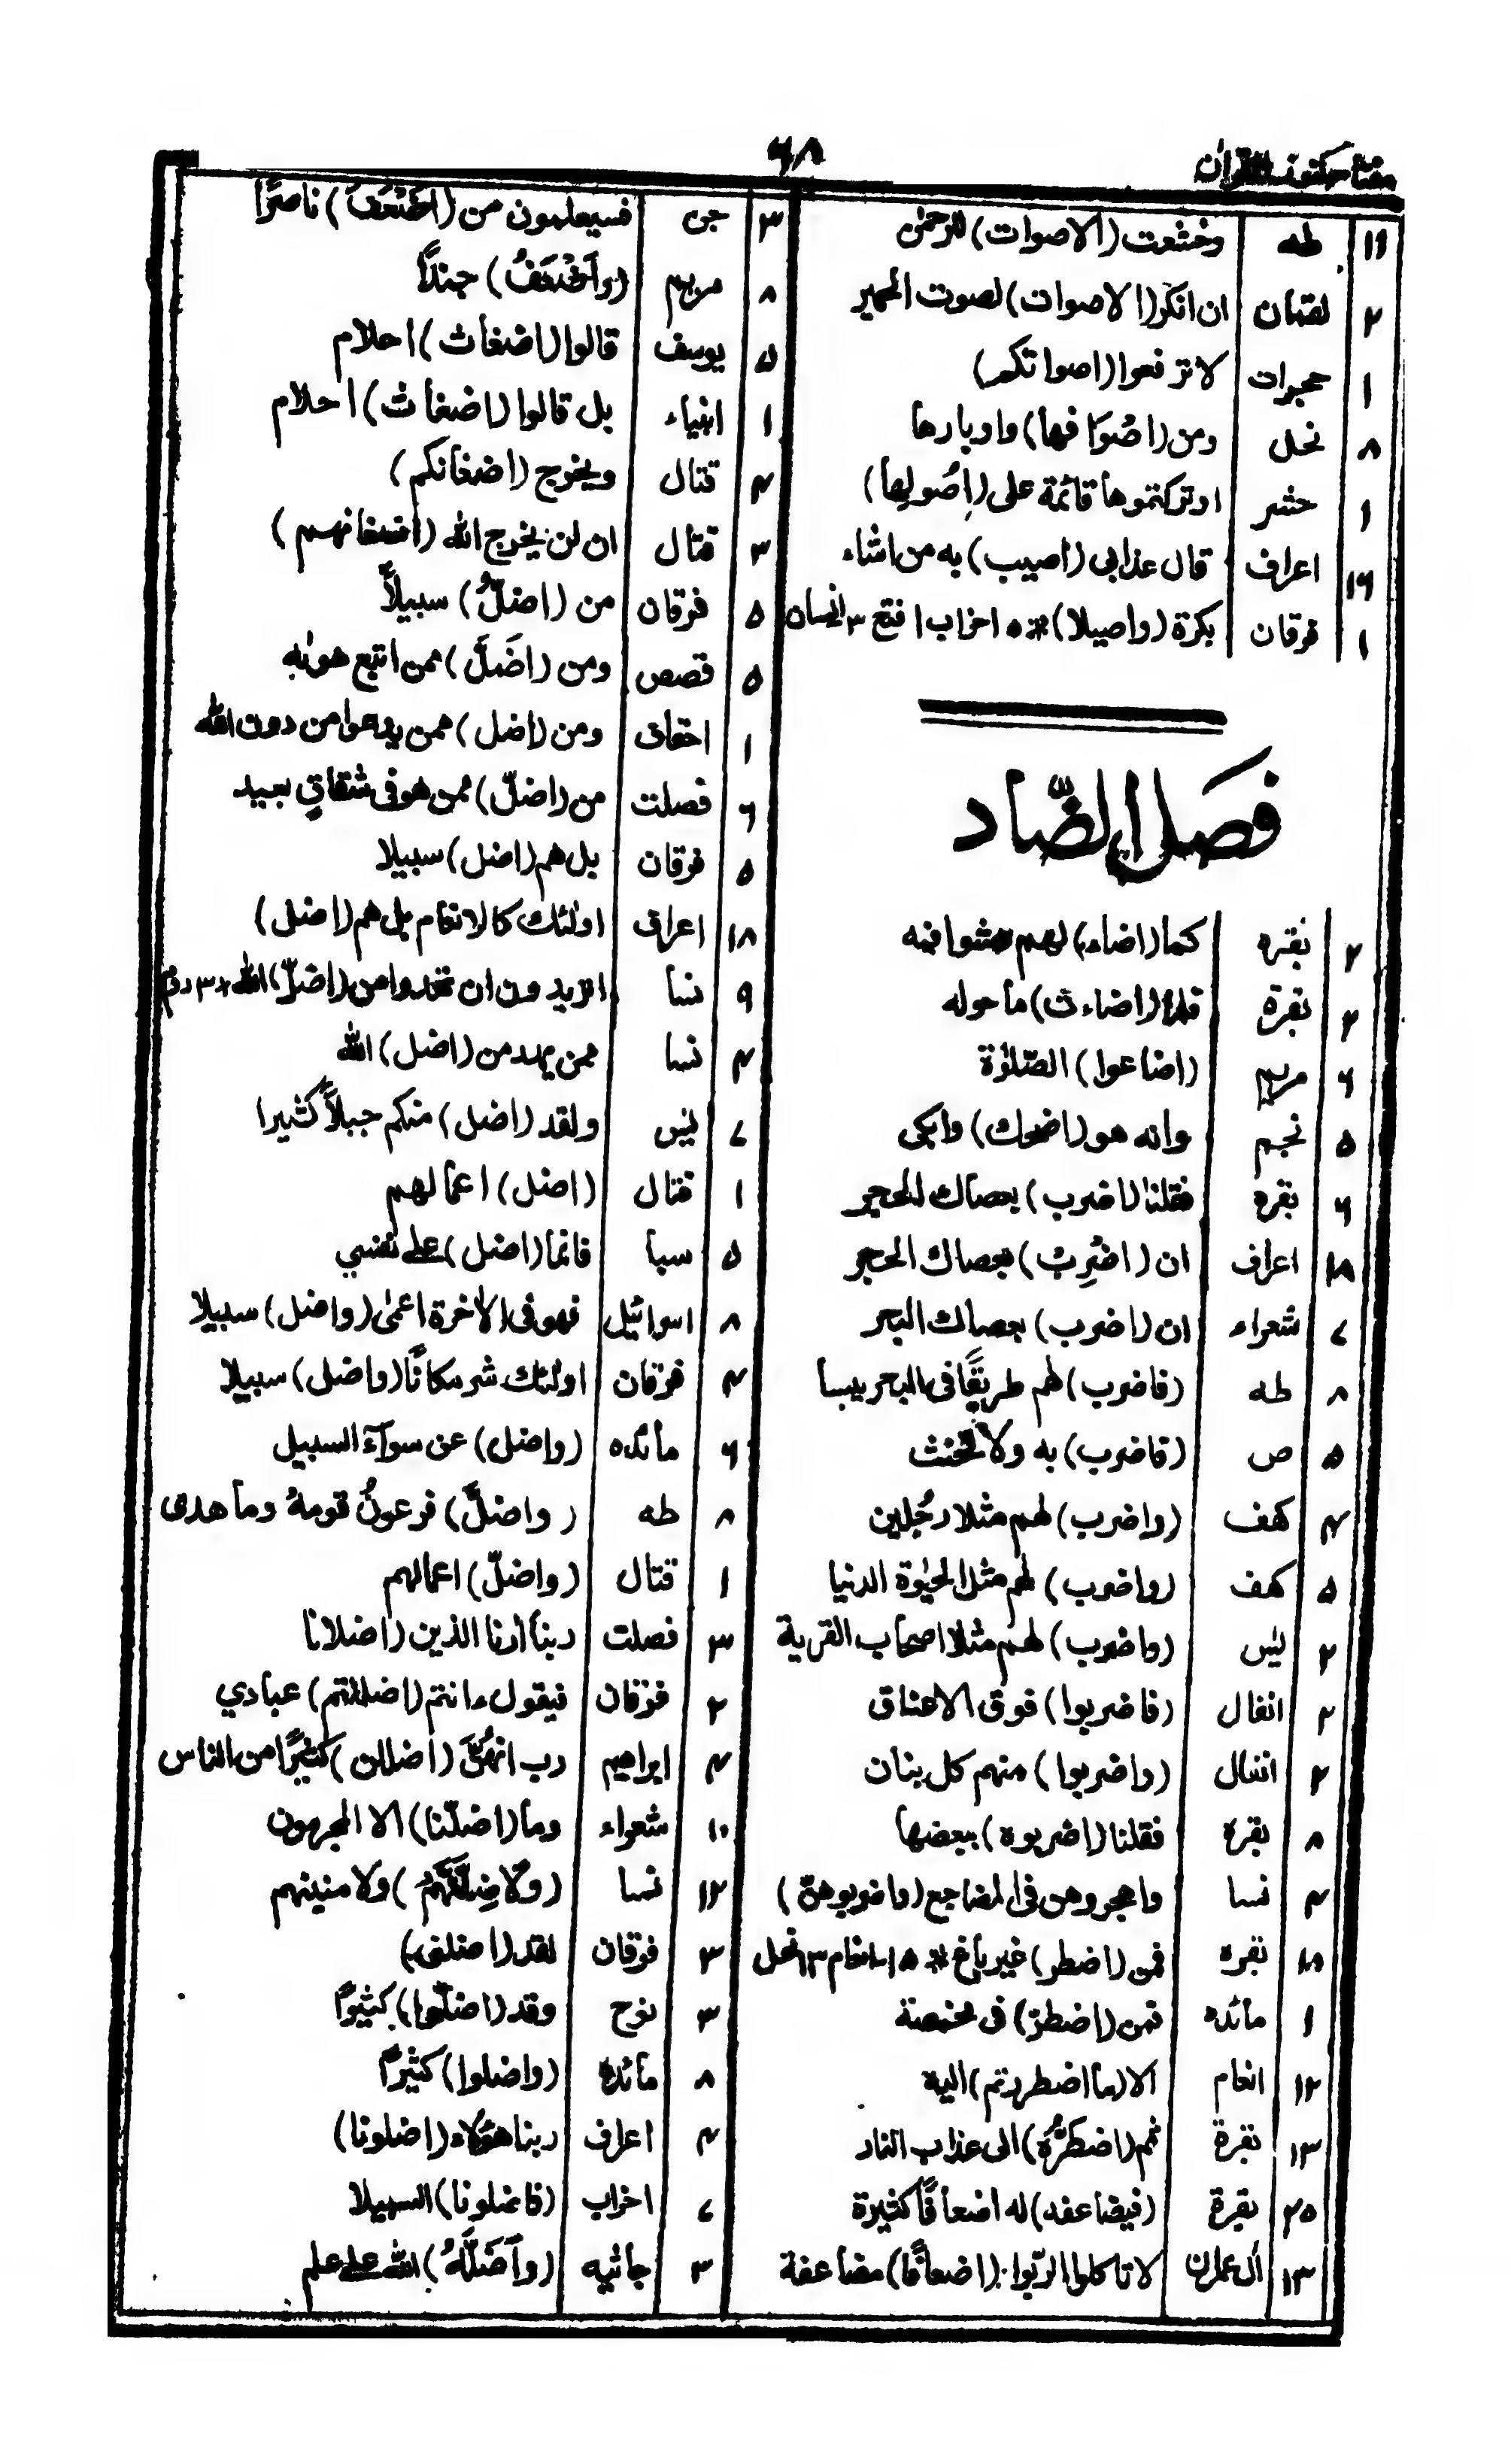 مفتاح كنوز القرآن
٦٨
١١ طه وخشعت (الاصوات) للرحمٰن
٢ لقمان ان انكر (الاصوات) لصوت الحمير
١ حجرات لا ترفعوا (اصواتكم)
٨ نحل ومن (اصْوَافها) واوبارها
١ حشر اوتركتموها قائمة على (اصُولها)
١٩ اعراف قال عذابى (اصيب) به من اشاء
١ فرقان بكرة (واصيلا) * ٥ احزاب ١ فتح ٣ انسان
فصل الضّاد
٢ بقره كما (اضاء) لهم مشوا فيه
٢ بقرة فلما (اضاءت) ما حوله
٦ مريم (اضاعوا) الصّلوٰة
٥ نجم وانه هو (اضحك) وابكى
٦ بقره فقلنا (اضرب) بعصاك الحجر
١٨ اعراف ان (اضْرِبْ) بعصاك الحجر
٧ شعراء ان (اضرب) بعصاك البحر
٨ طه (فاضرب) لهم طريقًا فى البحر يبسا
٥ ص (فاضرب) به ولا تحنث
٤ كهف (واضرب) لهم مثلا رجُلين
٥ كهف (واضرب) لهم مثل الحيٰوة الدنيا
٢ يٰس (واضرب) لهم مثلا اصحاب القرية
٢ انفال (فاضربوا) فوق الاعناق
٢ انفال (واضربوا) منهم كل بنان
٨ بقرة فقلنا (اضربوه) ببعضها
٤ نسا واهجروهن فى المضاجع (واضربوهن)
١٨ بقره فمن (اضطر) غير باغ * ١٥ انعام ١٣ نحل
١ مائده فمن (اضطرّ) فى مخمصة
١٢ انعام الا (ما اضطررتم) اليه
١٣ بقرة ثم (اضطَرُّه) الى عذاب النار
٢٥ بقرة (فيضاعفه) له اضعافًا كثيرة
١٣ اٰل عمرٰن لا تاكلوا الرّبوا (اضعافًا) مضاعفة
٣ جن فسيعلمون من (اضْعَفُ) ناصرًا
٨ مريم (واَضْعَفُ) جندًا
٥ يوسف قالوا (اضغاث) احلام
١ انبياء بل قالوا (اضغاث) احلام
٤ قتال ويخرج (اضغانكم)
٣ قتال ان لن يخرج الله (اضغانهم)
٥ فرقان من (اضلُّ) سبيلاً
٥ قصص ومن (اضَلُّ) ممن اتبع هوٰىه
١ احقاف ومن (اضل) ممن يدعوا من دون الله
٦ فصلت من (اضلّ) ممن هو فى شقاقٍ بعيد
٥ فرقان بل هم (اضل) سبيلا
١٨ اعراف اولئك كالانعام بل هم (اضل)
٩ نسا اتريدون ان تهدوا من (اضلّ) الله * ٣ روم
٤ نسا فمن يهد من (اضل) الله
٧ يٰس ولقد (اضل) منكم جبلاً كثيرا
١ قتال (اضل) اعمالهم
٥ سبا فانما (اضل) على نفسي
٨ اسرائيل فهو فى الاٰخرة اعمٰى (واضل) سبيلا
٤ فرقان اولئك شر مكانًا (واضل) سبيلا
٦ مائده (واضل) عن سوآء السبيل
٨ طه (واضلَّ) فرعونُ قومهُ وما هدى
١ قتال (واضلّ) اعمالهم
٣ فصلت ربنا ارنا الذين (اضلانا
٢ فرقان فيقول ءانتم (اضللتم) عبادي
٤ ابراهيم رب انهُنَّ (اضللن) كثيرًا من الناس
١٠ شعراء وما (اضلّنا) الا المجرمون
١٢ نسا (ولاُضِلَّنَّهُمْ) ولامنينهم
٣ فرقان لقد (اضلنى)
٣ نوح وقد (اضلّوا) كثيرًا
٨ مائدة (واضلوا) كثيرًا
٤ اعراف ربنا هؤلاء (اضلونا)
٧ احزاب (فاضلونا) السبيلا
٣ جاثيه (واَضَلَّهُ) الله على علم